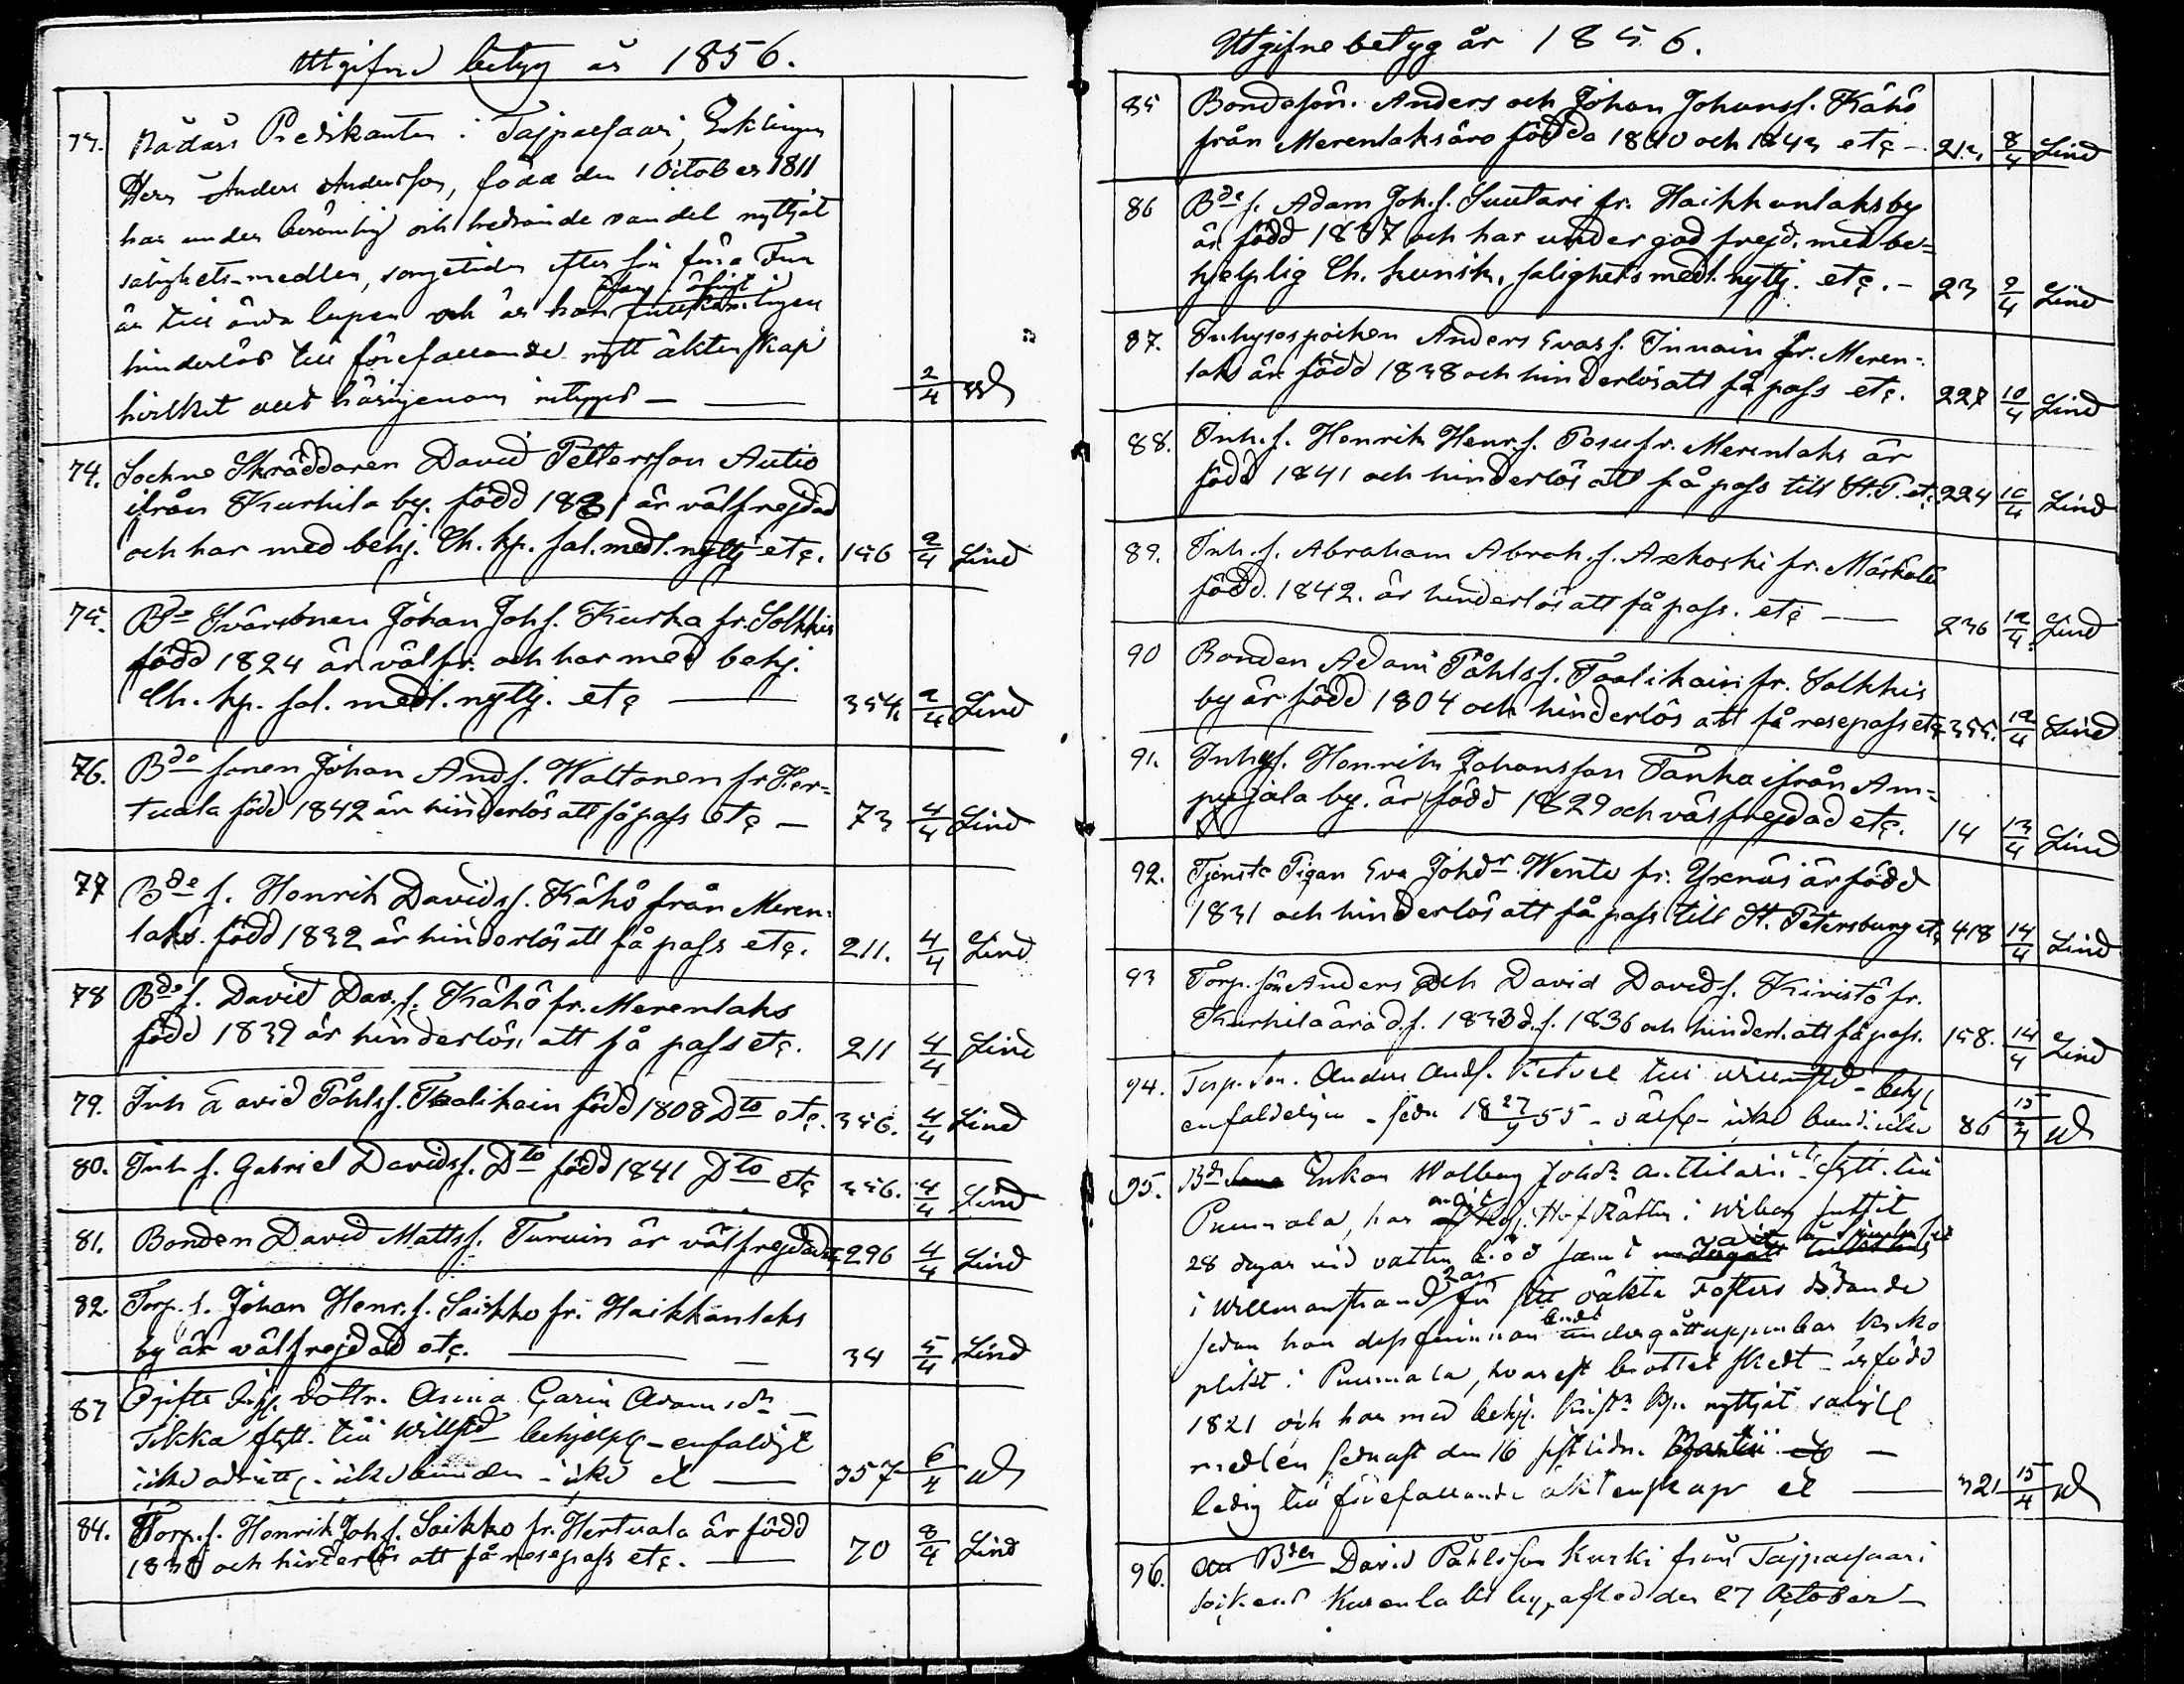 Utgifne betyg år 1856.
73. Nådårs Predikanten i Taipalsaari, Enklingen
Herr Anders Andersson, född den 1 October 1811
har under berömlig och hedrande vandel nyttjat
salighets-medlen, sorgetiden efter sin förra Fru
är till ända lupen och är han
hinderlös till förefallande nytt äktenskap
hvilket att härigenom intygas — 2/4
74. Sockne Skräddaren David Pettersson Autio
ifrån Kurhila by. född 1831 är välfrejdad
och har med behj. Ch. kp. sal. medl. nyttj etc. 156 2/4 Lind
75. Bde Svärsonen Johan Joh s. Kurka fr. Solkkis
född 1824 är välfr. och har med behj.
Ch. kp. sal. medl. nyttj. etc — 354 2/4 Lind
76. Bde sonen Johan And s. Waltonen fr Her-
tuala född 1842 är hinderlös att få pass etc — 73 4/4 Lind
77 Bde s. Henrik Davids s. Kähö från Meren-
laks. född 1832 är hinderlös att få pass etc. 211. 4/4 Lind
78 Bde s. David Dav. s. Kähö fr. Merenlaks
född 1839 är hinderlös att få pass etc. 211 4/4 Lind
79. Inh David Påhls s. Taalikain född 1808 Dto etc. 356. 4/4 Lind
80. Inh s. Gabriel Davids s. Dto född 1841 Dto etc 356. 4/4 Lind
81. Bonden David Matts s. Turuin är välfrejdad etc 296 4/4 Lind
82. Torp. s. Johan Henr. s. Saikko fr. Haikkanlaks
by är välfrejdad etc. — 34 5/4 Lind
83 Ogifta dottr. Anna Carin Adamsdr
Sikka flytt. till Willstd behjelpl - enfaldigt
icke icke bunden - icke et — 357 6/4
84. Torp. s. Henrik Joh s. Saikko fr. Hertuala är född
och hinderlös att få resepass etc. — 70 8/4 Lind
Utgifne betyg år 1856.
85 Bondesön. Anders och Johan Johans s. Kähö
från Merenlaks äro födda 1840 och 1843 etc — 213 8/4 Lind
86 Bde s. Adam Joh. s. Suutari fr. Haikkanlaks by
är född 1837 och har under god frejd. med be-
hjelplig Ch. kunsk. salighets medl. nyttj. etc. — 23 9/4 Lind
87. Inhysespoiken Anders Evas s. Innain fr. Meren-
laks är född 1838 och hinderlös att få pass etc. 227 10/4 Lind
88. Inh. s. Henrik Henr s. Pesu fr. Merenlaks är
född 1841 och hinderlös att få pass till St. P. etc 224 10/4 Lind
89. Inh. s. Abraham Abrah. s. Axkoski fr. Märkälä
född. 1842. är hinderlös att få pass. etc — 236 12/4 Lind
90 Bonden Adam Påhls s. Taalikain fr. Solkkis
by är född 1804 och hinderlös att få resepass etc 355. 12/4 Lind
91. Inhys s. Henrik Johansson Tanka ifrån Am-
pujala by. är född 1829 och välfrejdad etc. 14 13/4 Lind
92. Tjenste Pigan Eva Johdr. Wente fr. Yxnäs är född
1831 och hinderlös att få pass till St. Petersburg etc 418 14/4 Lind
93 Torp. sön Anders och David Davids s. Kivistö fr.
Kurhila är ad. f. 1833 d. f. 1836 och hinderl. att få pass. 158. 14/4 Lind
94. Torp. son. Anders Ands. till Willmstd - behjl
enfaldeligen - 18 27/9 55 - välfr - icke bunden 86 15/4
95. Bde Enkan Walborg Johdr Anttilain flytt. till
Pumala, har Hof Rätten i Wiborg suttit
28 dagar vid vatten bröd samt
i Willmanstrand 2 år för sitt oäkta Fosters dödande
sedan hon undergått uppenbar kyrko
plikt i Pumala, hvarest brottet skedt - är född
1821 och har med behj. nyttjat salighl
medlen sednast den 16 —
ledig till förefallande äktenskap et — 321 15/4
96. Bden David Påhlsson Kurki från Taipalsaari
sockens by, afled den 27 October —